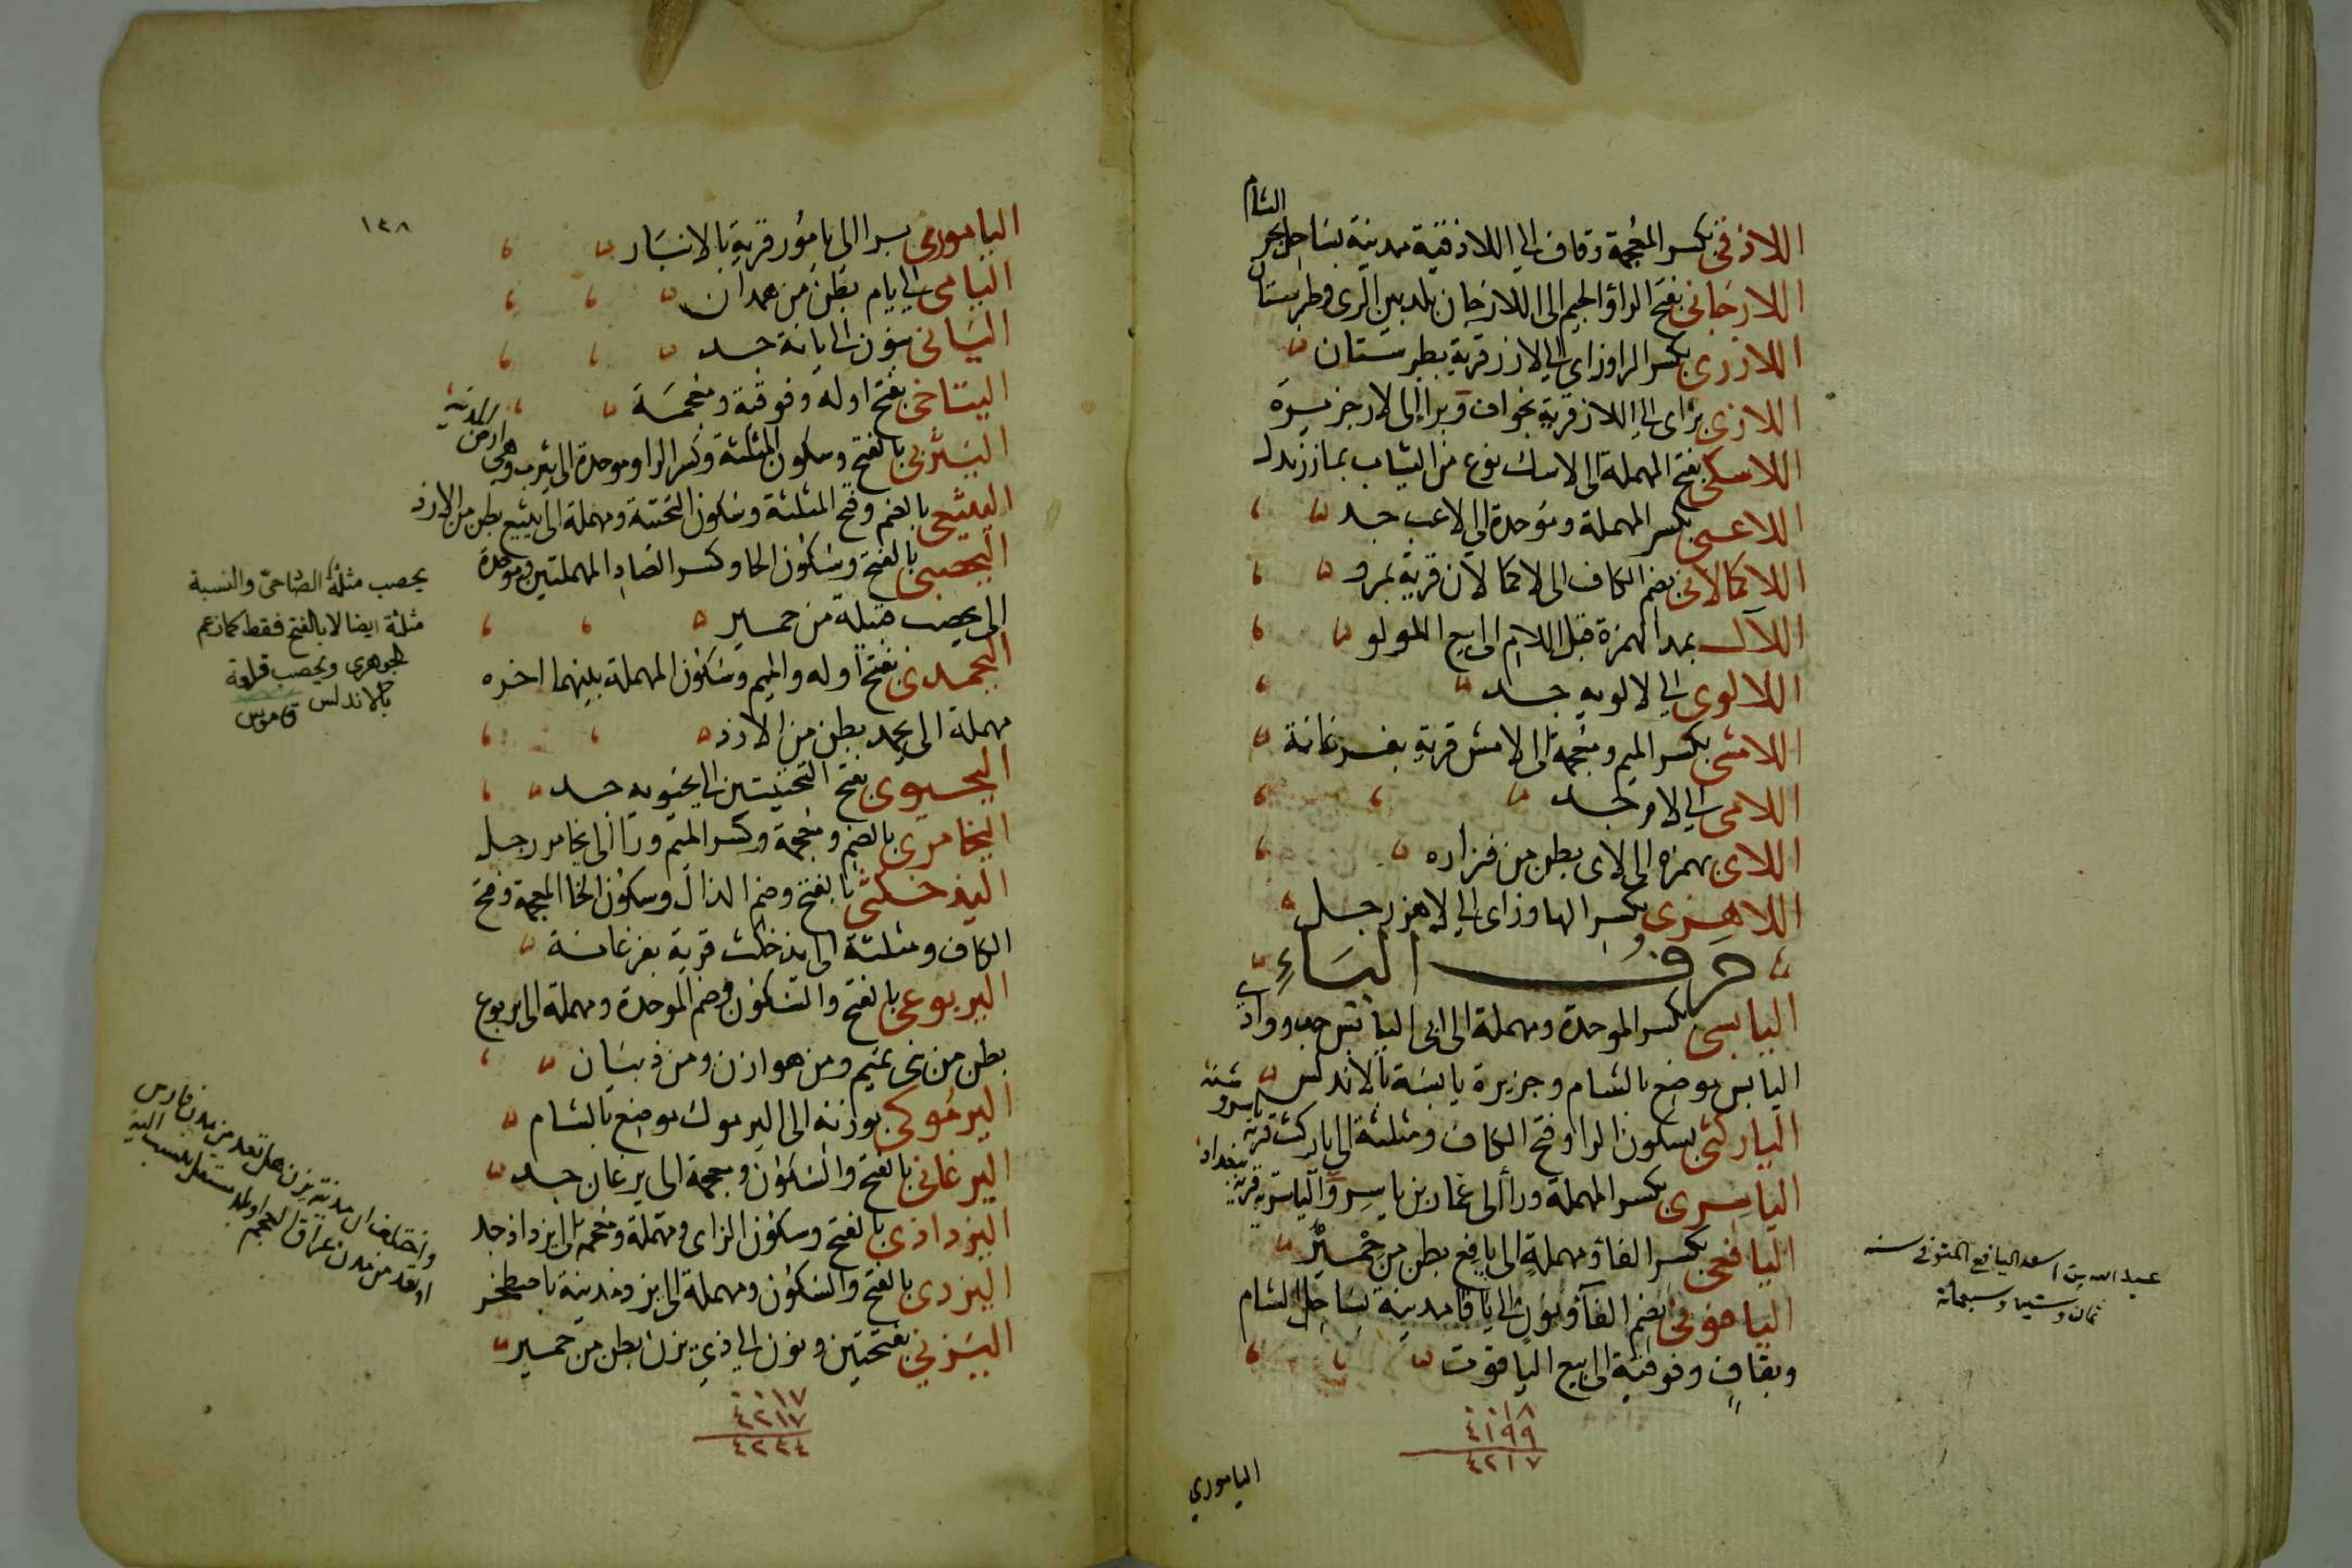 اللاذقى بكسر المعجمة وقاف الى اللاذقية مدينة بساحل بحر
الشام
اللارجانى بفتح الراء والجيم الى اللارجان بلد بين الرى وطبرستان
اللارزى بكسر الرا وزاى الى لارز قرية بطبرستان
اللازى بزاى الى اللاز قرية بخواف وبرا الى لار جزيرة
اللاسكى بفتح المهملة الى لاسك نوع من الثياب
اللاعبى بكسر المهملة وموحدة الى لاعب جد
اللاكمالانى بضم الكاف الى لاكمالان قرية بمرو
اللآل بمد الهمزة قبل اللام الى بيع اللولو
اللالوى الى لالويه جد
اللامشى بكسر الميم ومعجمة الى لامش قرية بفرغانة
اللامى الى لام جد
اللاى بهمزه الى لاى بطن من فزاره
اللاهزى بكسر الها وزاى الى لاهز رجل
حرف الياء
اليابسى بكسر الموحدة ومهملة الى ابى اليابس جد ووادى
اليابس موضع بالشام وجزيرة يابسة بالاندلس
الياركثى بسكون الرا وفتح الكاف ومثلثة الى ياركث قرية
الياسرى بكسر المهملة ورا الى عمار بن ياسر والياسرية قرية
ببغداد
اليافعى بكسر الفا ومهملة الى يافع بطن من حمير
اليافونى بضم الفا ونون الى يافا مدينة بساحل الشام
وبقاف وفوقية الى بيع الياقوت
٠٠١٨
٤١٩٩
٤٢١٧
الياموري
عبد الله بن اسعد اليافعى المتوفى سنه
ثمان وستين وسبعمائة
١٣٨
اليامورى برا الى يامور قرية بالانبار
اليامى الى يام بطن من همدان
اليانى بنون الى يانة جد
اليتاخى بفتح اوله وفوقية ومعجمة
اليثربى بالفتح وسكون المثلثة وكسر الرا وموحدة الى يثرب وهى
اليثيعى بالضم وفتح المثلثة وسكون التحتية ومهملة الى يثيع بطن من الازد
اليحصبى بالفتح وسكون الحا وكسر الصاد المهملتين وموحدة
الى يحصب قبيلة من حمير
اليحمدى بفتح اوله والميم وسكون المهملة بينهما اخره
مهملة الى يحمد بطن من الازد
اليحيوى بفتح التحتيتين الى يحيويه جد
اليخامرى بالضم ومعجمة وكسر الميم ورا الى يخامر رجل
اليذخكثى بالفتح وضم الذال وسكون الخا المعجمة وفتح
الكاف ومثلثة الى يذخكث قرية بفرغانة
اليربوعى بالفتح والسكون وضم الموحدة ومهملة الى يربوع
بطن من بنى تميم ومن هوازن ومن ذبيان
اليرموكى بوزنه الى اليرموك موضع بالشام
اليرغانى بالفتح والسكون ومعجمة الى يرغان جد
اليزداذى بالفتح وسكون الزاى ومهملة ومعجمة الى يزداذ جد
اليزدى بالفتح والسكون ومهملة الى يزد مدينة باصطخر
اليزني بفتحتين ونون الى ذي يزن بطن من حمير
٠٠١٧
٤٢١٧
٤٢٣٤
يحصب مثلثة الصاد حىّ والنسبة
مثلثة ايضا لا بالفتح فقط كما زعم
الجوهرى ويحصب قلعة
بالاندلس قاموس